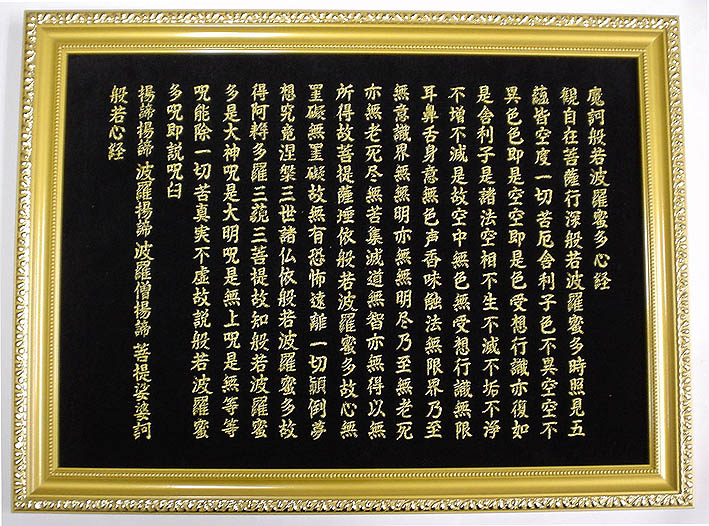 魔訶般若波羅蜜多心経
観自在菩薩行深般若波羅蜜多時照見五
蘊皆空度一切苦厄舎利子色不異空空不
異色色即是空空即是色受想行識亦復如
是舎利子是諸法空相不生不滅不垢不浄
不増不減是故空中無色無受想行識無限
耳鼻舌身意無色声香味触法無限界乃至
無意識界無無明亦無無明尽乃至無老死
亦無老死尽無苦集滅道無智亦無得以無
所得故菩提薩埵依般若波羅蜜多故心無
罣礙無罣礙故無有恐怖遠離一切顛倒夢
想究竟涅槃三世諸仏依般若波羅蜜多故
得阿耨多羅三藐三菩提故知般若波羅蜜
多是大神呪是大明呪是無上呪是無等等
呪能除一切苦真実不虚故説般若波羅蜜
多呪即説呪曰
揚諦揚諦 波羅揚諦 波羅僧揚諦 菩提娑婆訶
般若心経